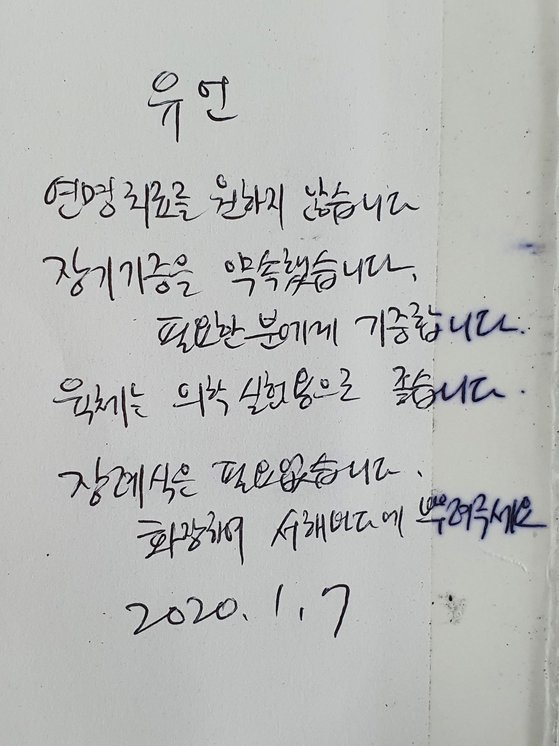 유언
연명치료를 원하지 않습니다
장기기증을 약속했습니다.
필요한분에게 기증합니다.
육체는 의학실험용으로 좋습니다.
장례식은 필요없습니다.
화장하여 서해바다에 뿌려주세요
2020.1.7